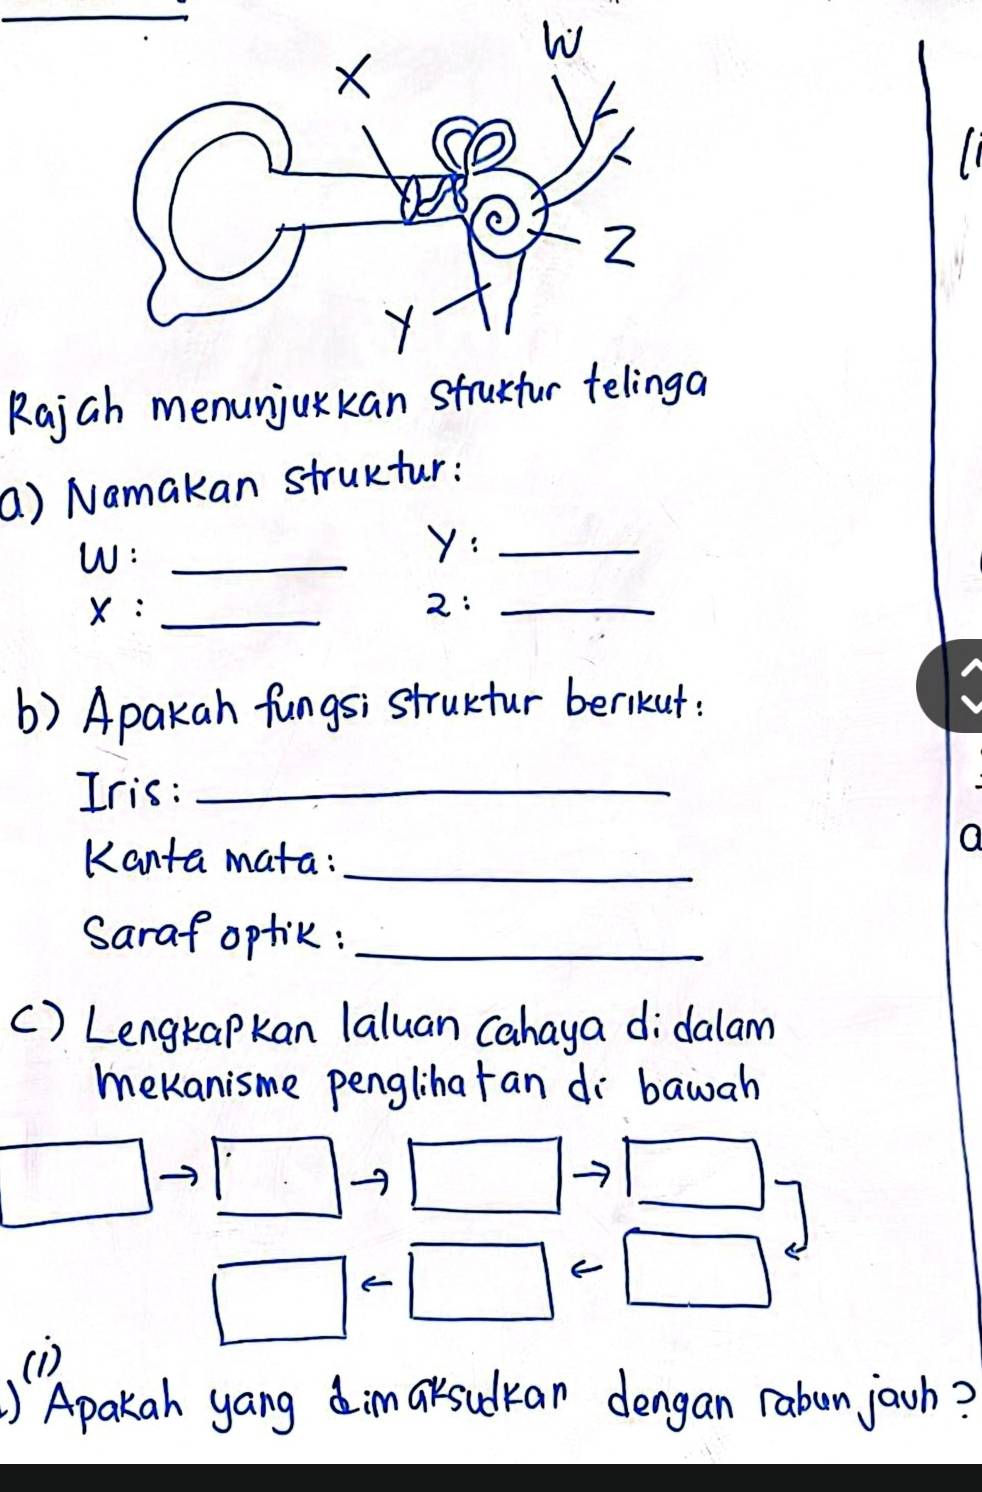 X
W
Z
Y
Rajah menunjukkan struktur telinga
a) Namakan struktur:
W: Y:
X: Z:
b) Apakah fungsi struktur berikut:
Iris:
Kanta mata:
Saraf optik:
c) Lengkapkan laluan cahaya di dalam
mekanisme penglihatan di bawah
(i)
Apakah yang dimaksudkan dengan rabun jauh?
a